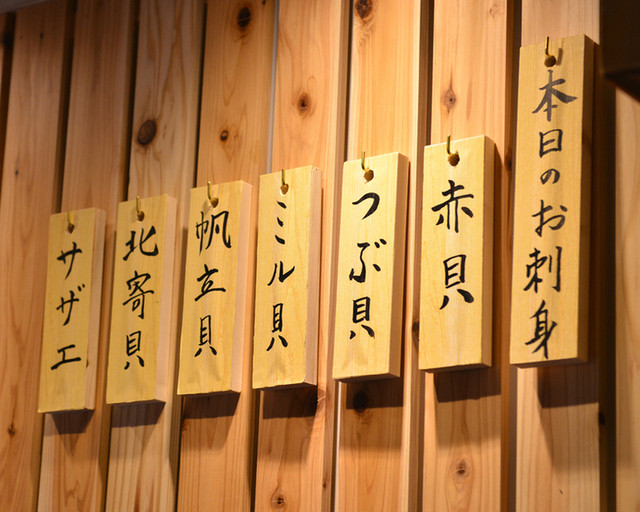 本日のお刺身
赤貝
つぶ貝
ミル貝
帆立貝
北寄貝
サザエ